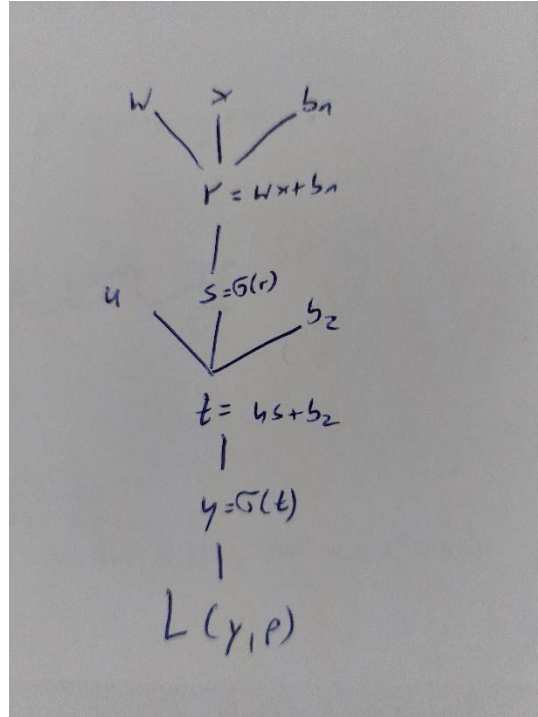 W x b₁
r = wx+b₁
s=σ(r)
u b₂
t= us+b₂
y=σ(t)
L(y,p)